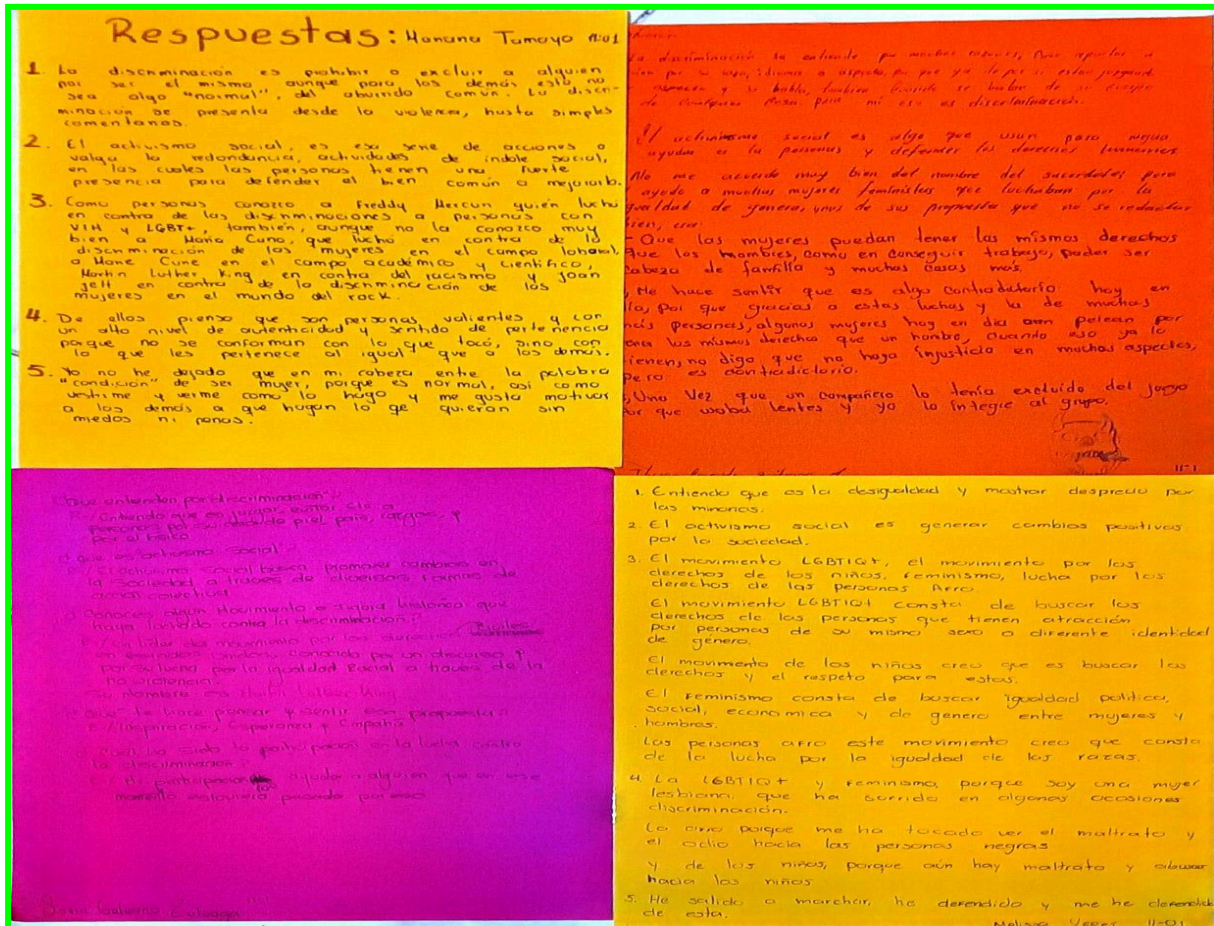 Respuestas: Manana Tamayo 11:01
1. La discriminación es prohibir o excluir a alguien
por ser el mismo aunque para los demás esto no
sea algo "normal", del aburrido común. La discri-
minación se presenta desde la violencia, hasta simples
comentarios.
2. El activismo social, es esa serie de acciones o
valga la redondancia, actividades de indole social,
en las cuales las personas tienen una fuerte
presencia para defender el bien común o mejorarlo.
3. Como personas conozco a Freddy Mercuri quién luchó
en contra de las discriminaciones a personas con
VIH y LGBT+, también, aunque no la conozco muy
bien a Maria Cano, que luchó en contra de la
discriminación de las mujeres en el campo laboral,
a Marie Curie en el campo académico y científico,
Martin Luther King en contra del racismo y Joan
Jett en contra de la discriminación de las
mujeres en el mundo del rock.
4. De ellos pienso que son personas valientes y con
un alto nivel de autenticidad y sentido de pertenencia
porque no se conforman con lo que tocó, sino con
lo que les pertenece al igual que a los demás.
5. Yo no he dejado que en mi cabeza entre la palabra
"condición" de ser mujer, porque es normal, así como
vestirme y verme como lo hago y me gusta motivar
a los demás a que hagan lo qe quieran sin
miedos ni penas.
la discriminación se entiende por muchas razones,
por su raza, idioma o aspecto, por que ya de por si estan juzgando
aspecto y su habla, tambien cuando se burlan de su cuerpo
de cualquier cosa. para mi eso es discriminación.
El activismo social es algo que usan para
ayudar a la personas y defender los derechos humanos
No me acuerdo muy bien del nombre del sacerdote; pero
ayudo a muchas mujeres feministas que luchaban por la
igualdad de genero, unos de sus propuesta que no se redactar
bien, era:
- Que las mujeres puedan tener los mismos derechos
que los hombres, como en conseguir trabajo, poder ser
cabeza de familia y muchas cosas mas.
Me hace sentir que es algo contradictorio hoy en
día, por que gracias a estas luchas y la de muchas
más personas, algunas mujeres hoy en dia aun pelean por
los mismos derecho que un hombre, cuando eso ya lo
tienen, no digo que no haya injusticia en muchos aspectos,
pero es contradictorio.
Una vez que un compañero lo tenia excluido del juego
por que usaba lentes y yo lo integre al grupo.
11-1
¿Que entienden por discriminación?
R/ Entiendo que es juzgar, evitar
personas por su piel, pais, rasgos, y
por el fisico
¿que es activismo social?
R/ El activismo social busca promover cambios en
la sociedad a traves de diversas formas de
acción colectiva
¿Conoces algun Movimiento o figura historica que
haya luchado contra la discriminación?
R/ Un lider del movimiento por los derechos Civiles
en estados unidos. Conocido por un discurso y
por su lucha por la igualdad Racial a traves de la
no violencia.
Su nombre es Martin Luther King
¿Que te hace pensar y sentir esa propuesta?
R/ Inspiración, Esperanza y Empatia
¿Cual ha sido tu participación en la lucha contra
la discriminación?
R/ Mi participación ayudar a alguien que en ese
momento estuviera pasando por eso
1. Entiendo que es la desigualdad y mostrar desprecio por
las minorias.
2. El activismo social es generar cambios positivos
por la sociedad.
3. El movimiento LGBTIQ+, el movimiento por los
derechos de los niños, feminismo, lucha por los
derechos de las personas Afro.
El movimiento LGBTIQ+ consta de buscar los
derechos de las personas que tienen atracción
por personas de su mismo sexo o diferente identidad
de género.
El movimento de los niños creo que es buscar los
derechos y el respeto para estos.
El Feminismo consta de buscar igualdad politica,
social, economica y de genero entre mujeres y
hombres.
Las personas afro este movimiento creo que consta
de la lucha por la igualdad de las razas.
4. La LGBTIQ+ y Feminismo, porque soy una mujer
lesbiana que ha sufrido en algunas ocasiones
discriminación.
La afro porque me ha tocado ver el maltrato y
el odio hacia las personas negras
Y de los niños, porque aún hay maltrato y abuso
hacia los niños
5. He salido a marchar, he defendido y me he defendido
de esta.
Melissa Yepes 11-01